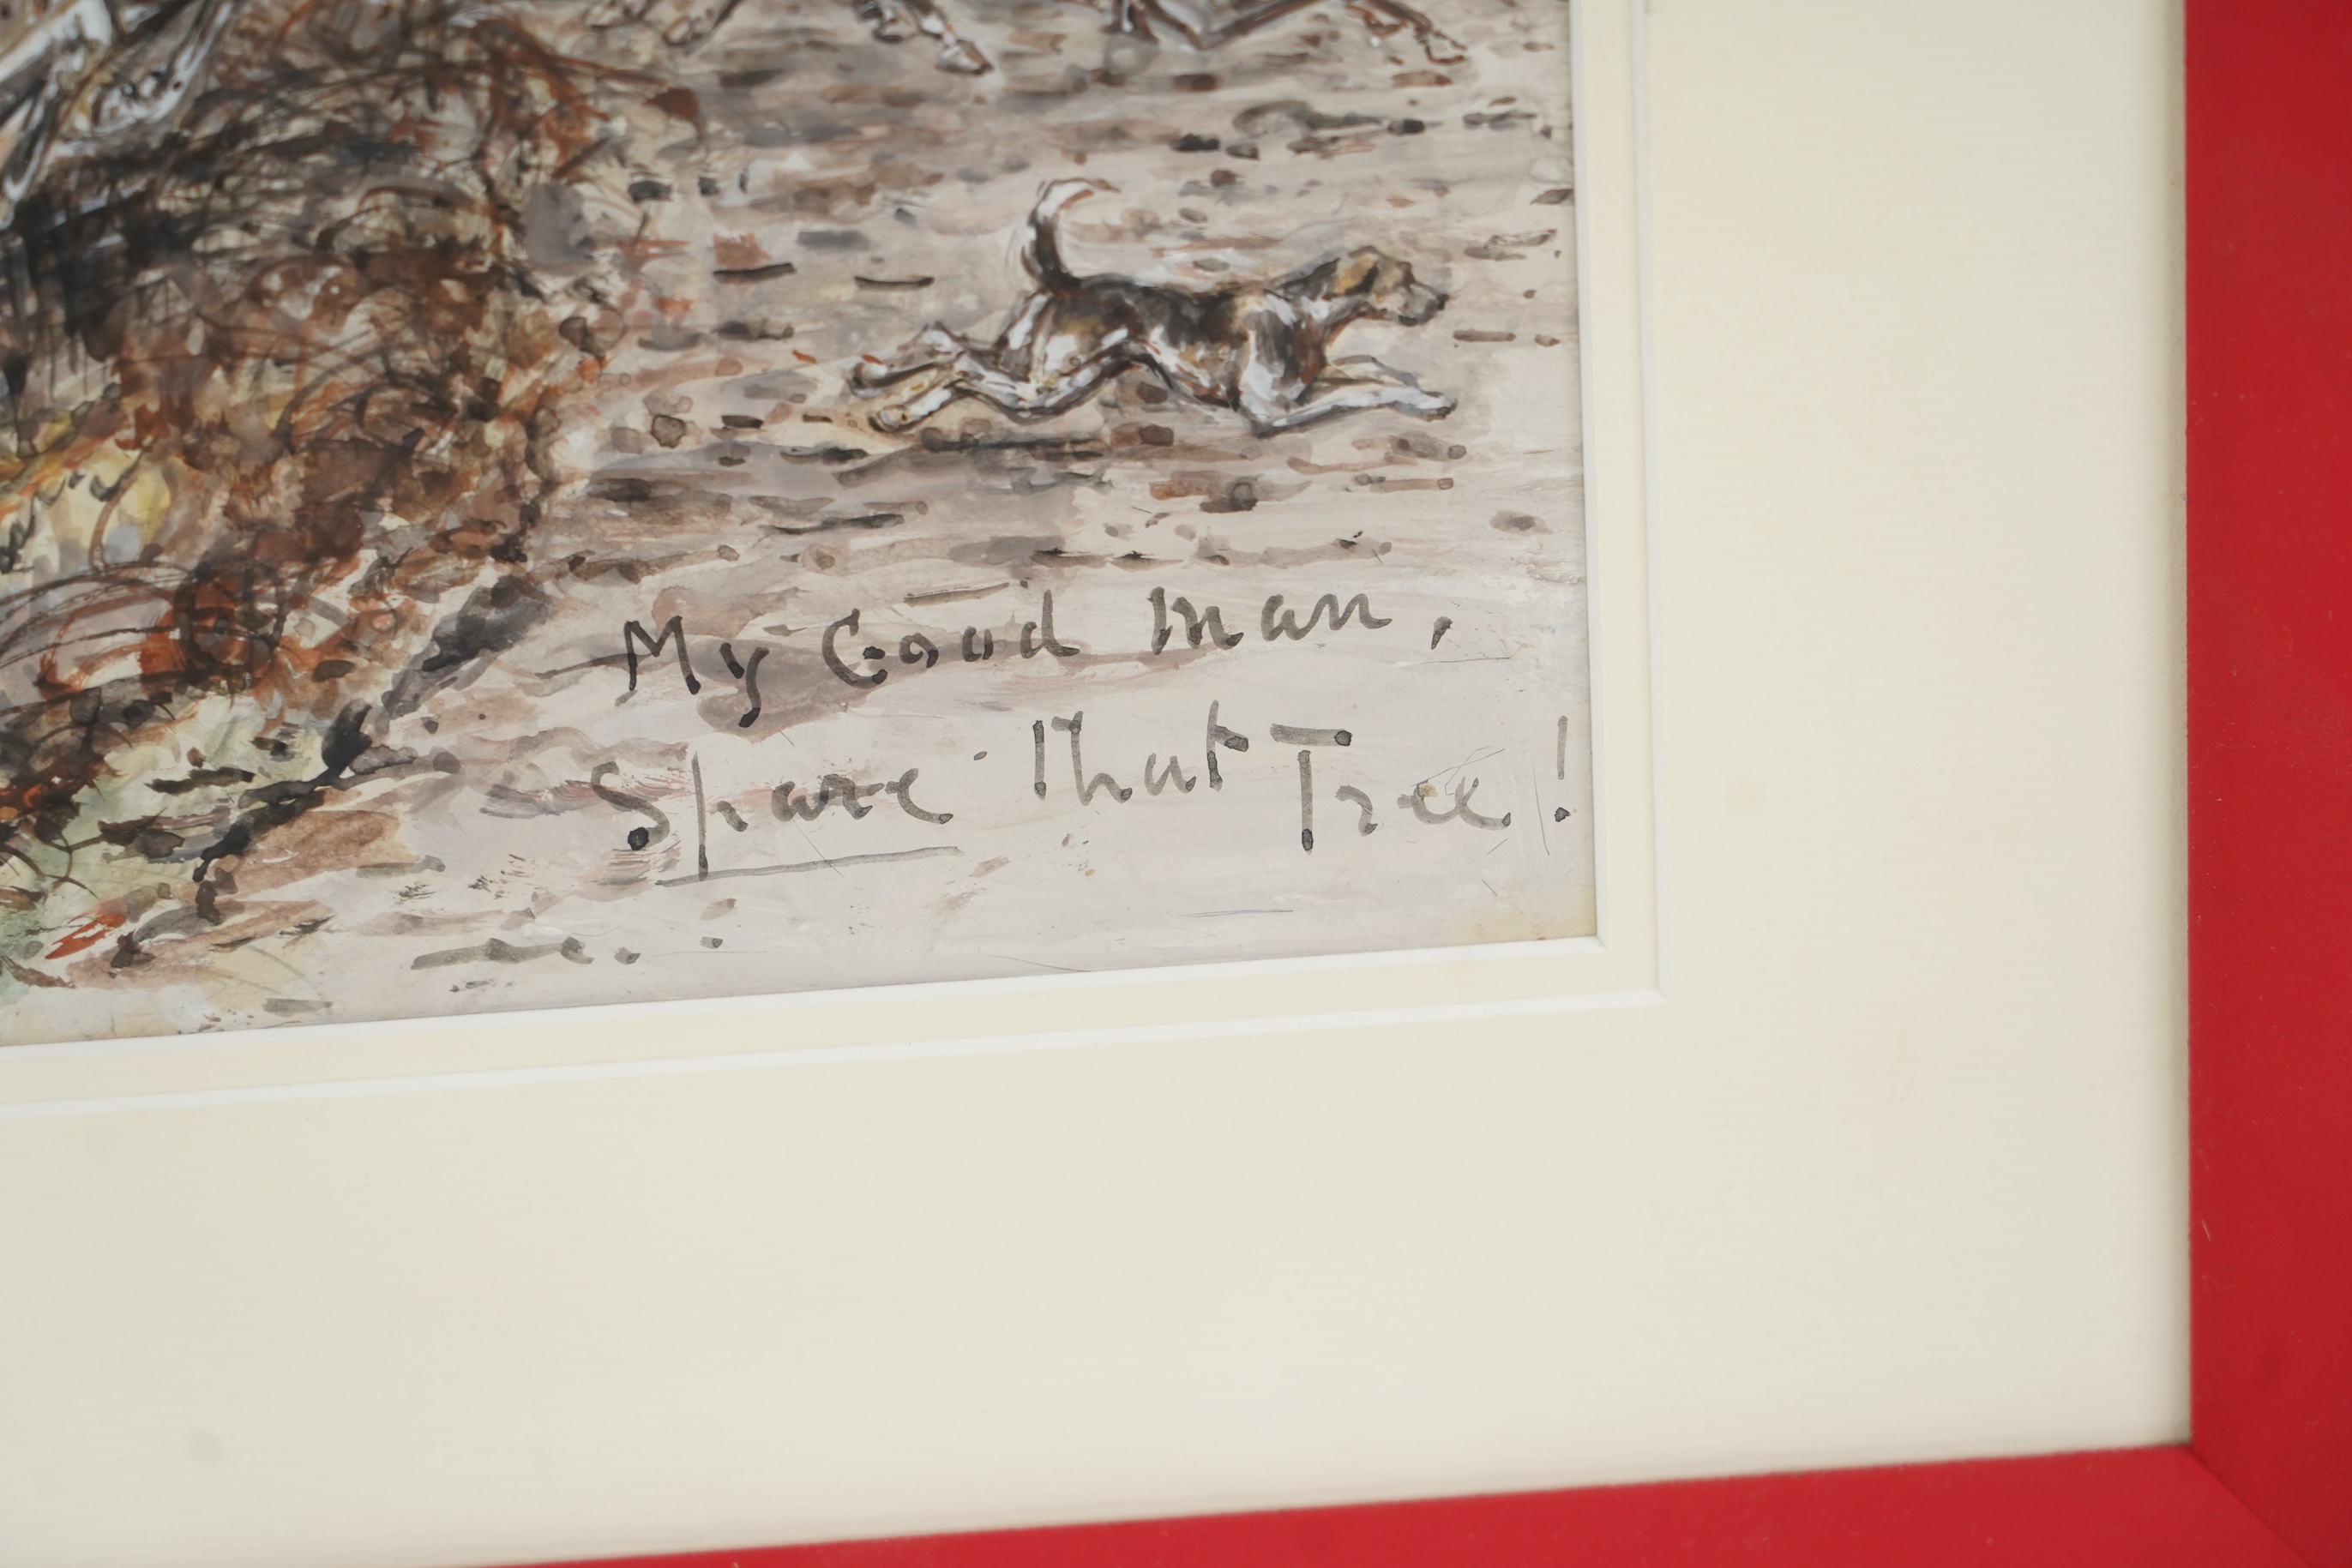 My Good Man,
Spare that Tree!